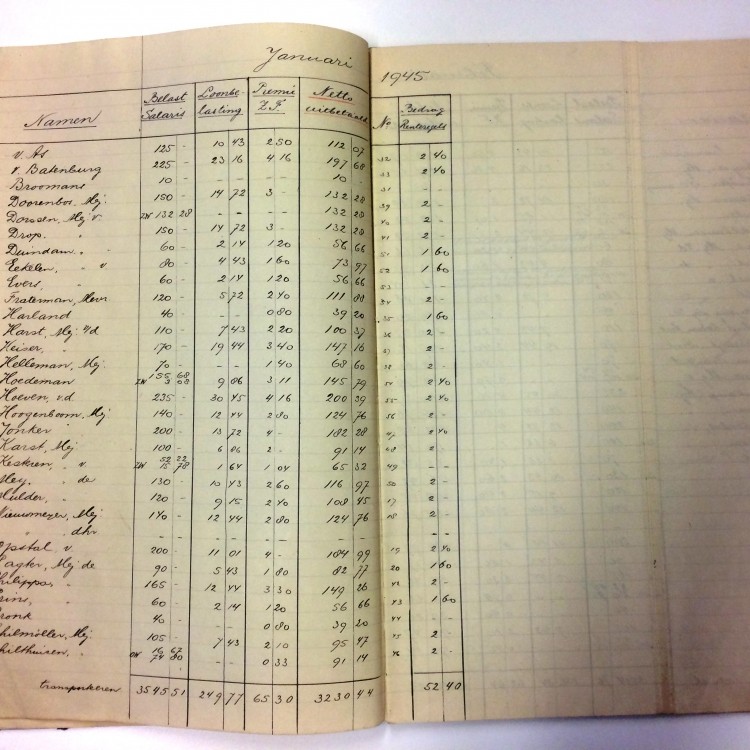 Januari 1945
Namen Belast Salaris Loonbelasting Premie Z.F. Netto uitbetaald No Beding Renteregels
v. As 125 - 10 43 2 50 112 07 32 2 40
v. Batenburg 225 - 23 16 4 16 197 68 33 2 40
Broomans 10 - - - - - 10 - 31 - -
Doorenbos, Mej. 150 - 14 72 3 - 132 28 39 2 -
Dorssen, Mej v. ZW 132 28 - - - - 132 28 40 2 -
Drop, " 150 - 14 72 3 - 132 28 41 2 -
Duindam, " 60 - 2 14 1 20 56 66 51 1 60
Eekelen, " v 80 - 4 43 1 60 73 97 52 1 60
Evers, " 60 - 2 14 1 20 56 66 53 - -
Fraterman, Mevr 120 - 5 72 2 40 111 88 34 2 -
Harland 40 - - - 0 80 39 20 35 1 60
Harst, Mej. v/d 110 - 7 43 2 20 100 37 36 2 -
Keizer, " 170 - 19 44 3 40 147 16 37 2 -
Helleman, Mej. 70 - - - 1 40 68 60 38 2 -
Hoedeman ZW 155 68 3 08 9 86 3 11 145 79 54 2 40
Hoeven, v.d 235 - 30 45 4 16 200 39 55 2 40
Hoogenboom, Mej 140 - 12 44 2 80 124 76 56 2 -
Jonker 200 - 13 72 4 - 182 28 47 2 40
Karst, Mej 100 - 6 86 2 - 91 14 48 2 -
Keskren, " v. ZW 52 22 15 78 1 64 1 04 65 32 49 - -
Mey, " de 130 - 10 43 2 60 116 97 50 2 -
Mulder, " 120 - 9 15 2 40 108 45 17 2 -
Nieuwmeyer, Mej 140 - 12 44 2 80 124 76 18 2 -
" dhr - - - - - - - - - -
Opstal v. 200 - 11 01 4 - 184 99 19 2 40
Mej de 90 - 5 43 1 80 82 77 20 1 60
Philippo, " 165 - 12 44 3 30 149 26 42 2 -
60 - 2 14 1 20 56 66 43 1 60
40 - - - 0 80 39 20 44 - -
Mej 105 - 7 43 2 10 95 47 45 2 -
ZW 16 67 74 80 - - 0 33 91 14 46 2 -
transporteren 3545 51 249 77 65 30 3230 44 52 40